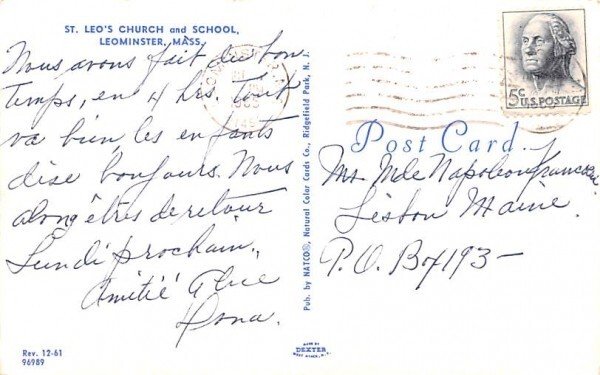 ST. LEO'S CHURCH and SCHOOL,
LEOMINSTER, MASS.
Nous avons fait du bon
temps, en 4 hrs. Tout
va bien, les enfants
dise bonjours. Nous
along êtres de retour
Lundi prochain,
Amitié
Dona.
Rev. 12-61
96989
Pub. by NATCO®, Natural Color Card Co., Ridgefield Park, N. J.
MADE BY
DEXTER
WEST NYACK, N.Y.
5¢
U.S. POSTAGE
Post Card
Mr. Mde Napoleon
Lisbon Maine.
P.O. Box 193-